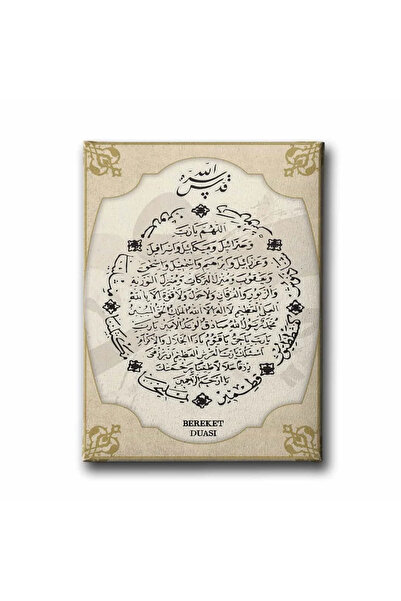 قدس الله سره
اللهم يا رب
وجبرائيل وميكائيل واسرافيل
وعزرائيل وابراهيم واسمعيل واسحق
ويعقوب ومنزل البركات ومنزل التورية
والزبور والفرقان ولا حول ولا قوة الا بالله
العلي العظيم لا اله الا الله الملك الحق المبين
محمد رسول الله صادق الوعد الامين يا رب
يا رب يا حي يا قيوم يا ذا الجلال والاكرام
اسئلك يا رب العرش العظيم ان ترزقني
رزقا حلالا طيبا برحمتك
يا ارحم الراحمين
BEREKET
DUASI